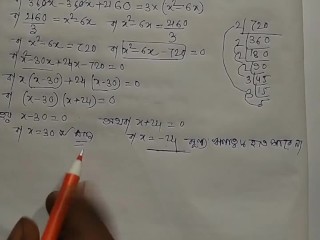 বা 360x-360x+2160 = 3x(x²-6x)
বা 2160/3 = x²-6x বা x²-6x = 2160/3
বা x²-6x = 720 বা x²-6x-720=0
বা x²-30x+24x-720=0
বা x(x-30)+24(x-30)=0
বা (x-30)(x+24)=0
x-30=0 অথবা x+24=0
বা x=30 বা x=-24
2 720
2 360
2 180
2 90
3 45
3 15
5